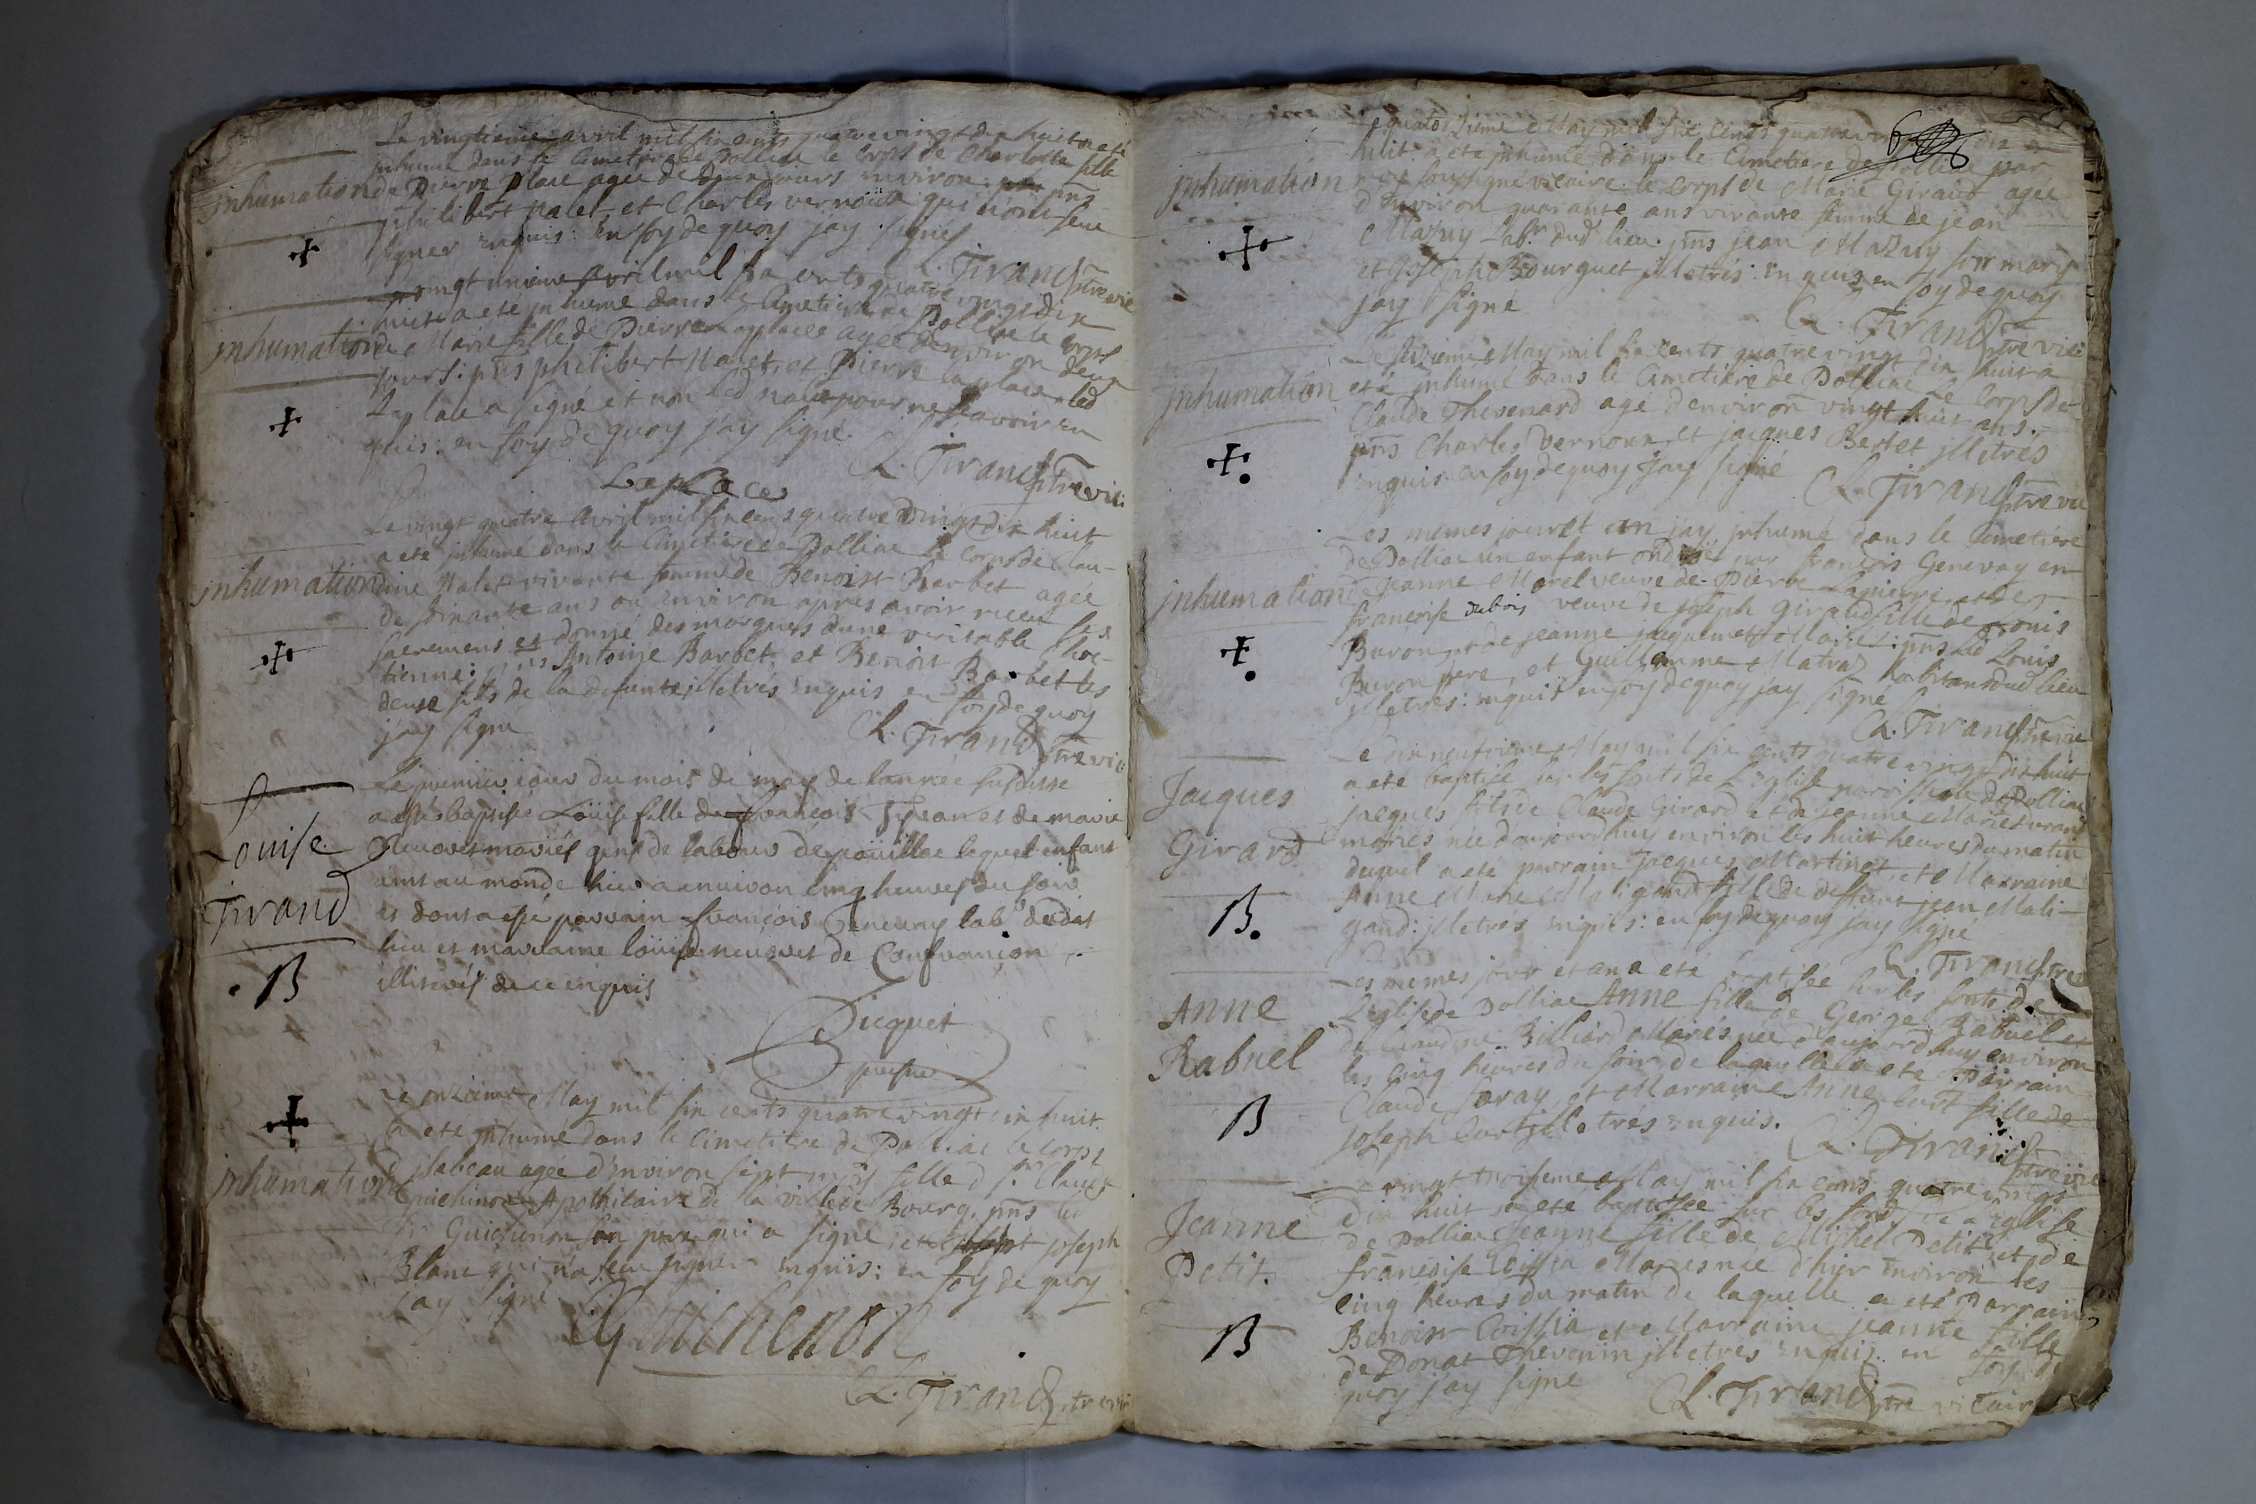 Le vingtieme avril mil six cents quatre vingt dix huit a eté
inhumé dans le Cimetiere de Polliac le corps de Charlotte fille
inhumation de Pierre place agée de deux jours environ: pñs
philibert nalet, et Charles vernoux qui n'ont sceu
signer enquis: en foy de quoy jay signé
L. Tirand ptre vic
vingt unieme Avril mil six cents quatre vingt dix
huit a eté inhumé dans le Cimetiere de Polliac le corps
inhumation de Marie fille de Pierre laplace agée d'environ deux
jours: pñs philibert Nalet, et Pierre laplace led
Laplace a signé et non led nalet pour ne sçavoir en
quis: en foy de quoy jay signé
L. Tirand ptre vic:
Laplace
Le vingt quatre Avril mil six cens quatre vingt dix huit
a eté inhumé dans le Cimetiere de Polliac le corps de Clau-
inhumation dine Nalet vivante femme de Benoist Barbet agée
de soixante ans ou environ apres avoir receu les
sacremens et donné des marques d'une veritable chre-
tienne: pñs Antoine Barbet, et Benoist Barbet les
deux fils de la defunte illetrés enquis en foy de quoy
jay signé
L. Tirand ptre vic
Le premier jour du mois de may de lannée susdisse
a esté baptisée Louise fille de françois Tirand et de marie
Louise
neuvet mariés gens de labour de poüillac lequel enfant
vint au monde hier a environ cinq heures du soir
Tirand
et dont a esté parrain françois Genevay lab.r dudit
lieu et marraine loüise neuvet de Confrançon
B
illiterés de ce enquis
Dicquet
Le onzieme May mil six cents quatre vingt dix huit
a eté inhumé dans le Cimetiere de Polliac le corps
inhumation d'ysabeau agée d'environ sept mois fille d s.r Claude
Guichenon Apothicaire de la ville de Bourg. pñs led
s.r Guichenon son pere qui a signé, et joseph
Blanc qui n'a sceu signer enquis: en foy de quoy
jay signé
Guichenon
L. Tirand ptre vic
6
quatorzieme May mil six cents quatre vingt dix
huit a eté inhumé dans le Cimetiere de Polliac par
inhumation moy soussigné vicaire le corps de Marie Giraud agée
d'environ quarante ans vivante femme de jean
Mazuy Lab.r dud lieu. pñs jean Mazuy son mary
et joseph Bourguet illetrés: enquis en foy de quoy
jay signé
L. Tirand ptre vic
Le seizieme May mil six cents quatre vingt dix huit a
inhumation eté inhumé dans le Cimetiere de Polliac le corps de
Claude Thevenard agé d'environ vingt huit ans.
pñs Charles vernoux, et jacques Bertet illetrés
enquis en foy de quoy jay signé
L. Tirand ptre vic
Les memes jour et an jay inhumé dans le Cimetiére
de Polliac un enfant ondoié par françois Genevay en
inhumation Jeanne Morel veuve de Pierre Lapierre, et de
françoise dubois veuve de joseph giraud fille de Louis
Buron et de jeanne jacquemet Mariés: pñs led Louis
Buron pere, et Guillemme Matras habitans dud lieu
illetrés: enquis en foy de quoy jay signé
L. Tirand ptre vic
Le dix neufvieme May mil six cents quatre vingt dix huit
a eté baptisé sur les fonts de L'eglise paroissiale de Polliac
Jacques
jacques fils de Claude Girard et de jeanne Marie
Girard
mariés née d'aujourd'huy environ les huit heures du matin
duquel a eté parrain Jacques Martinet, et Marraine
Anne Marie Maligand fille de deffunt jean Mali-
B.
gand: illetrés enquis: en foy de quoy jay signé
L. Tirand ptre
Les memes jour et an a eté baptisée sur les fonts de
Anne
L'eglise de Polliac Anne fille de George Rabuel et
Rabuel
de Claudine Billiard Mariés née d'aujourd'huy environ
les cinq heures du soir de laquelle a eté Parrain
Claude foray et Marraine Anne Curt fille de
B
joseph Curt illetrés enquis.
L. Tirand ptre vic
vingt troisieme May mil six cens quatre vingt
Jeanne
dix huit a eté baptisée sur les fonts de L'eglise
de Polliac Jeanne fille de Michel Petit et de
Petit.
françoise Coissia Mariés née d'hier environ les
cinq heures du matin de laquelle a eté Parrain
B
Benoist Coissia et Marraine jeanne fille
de Donat Thevenin illetrés enquis en foy de
quoy jay signé
L. Tirand ptre vicaire